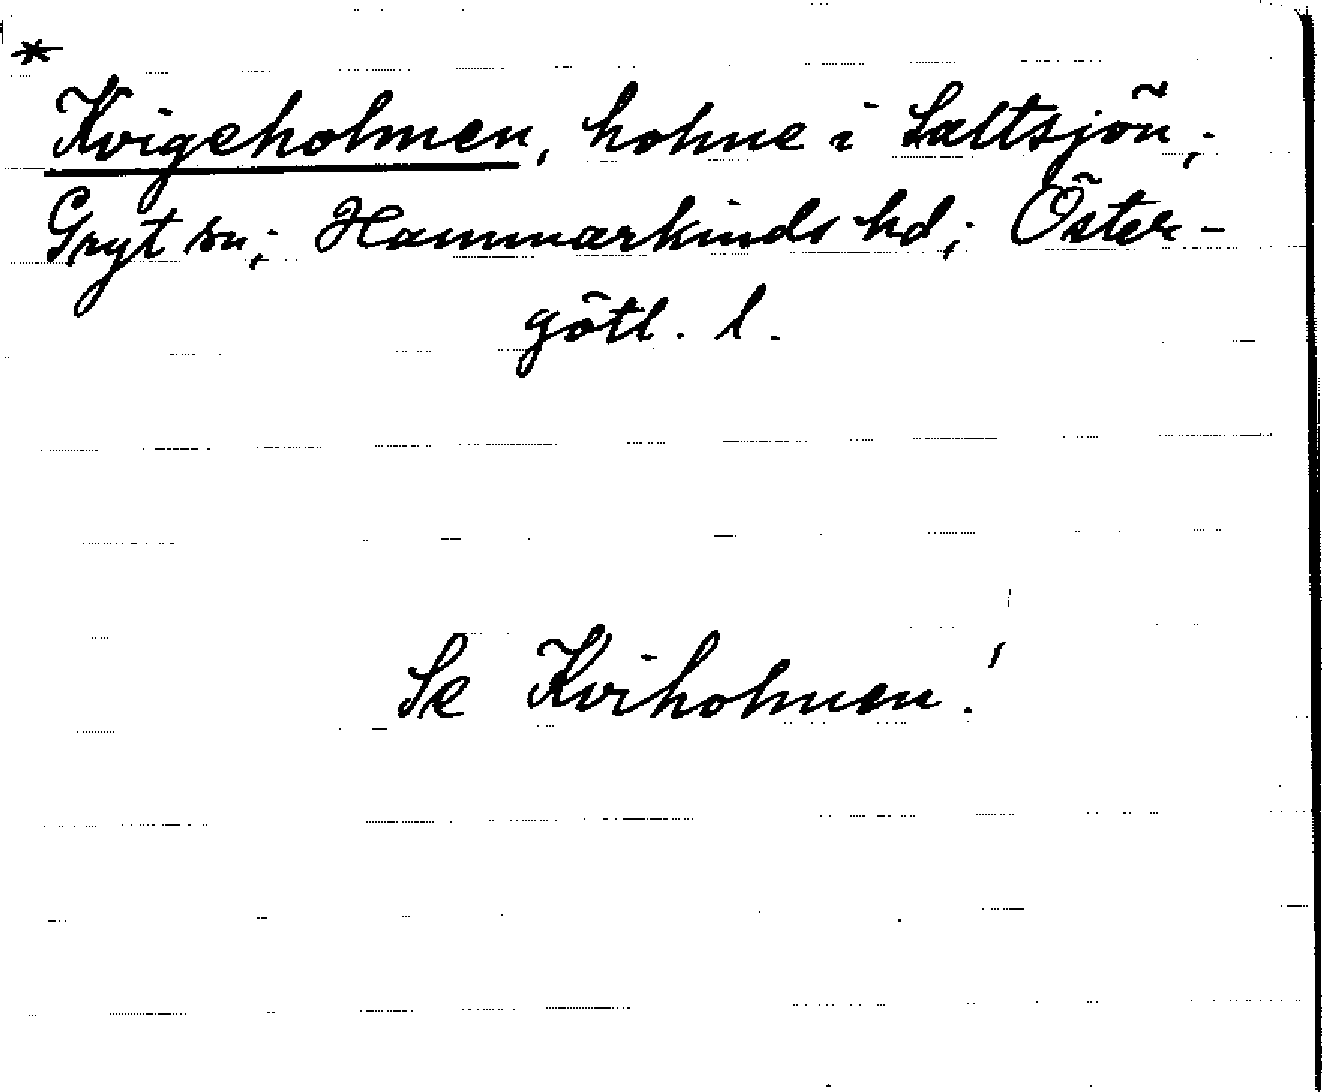 *
Kvigeholmen, holme i Saltsjön;
Gryt sn; Hammarkinds hd; Öster-
götl. l.
Se Kviholmen!